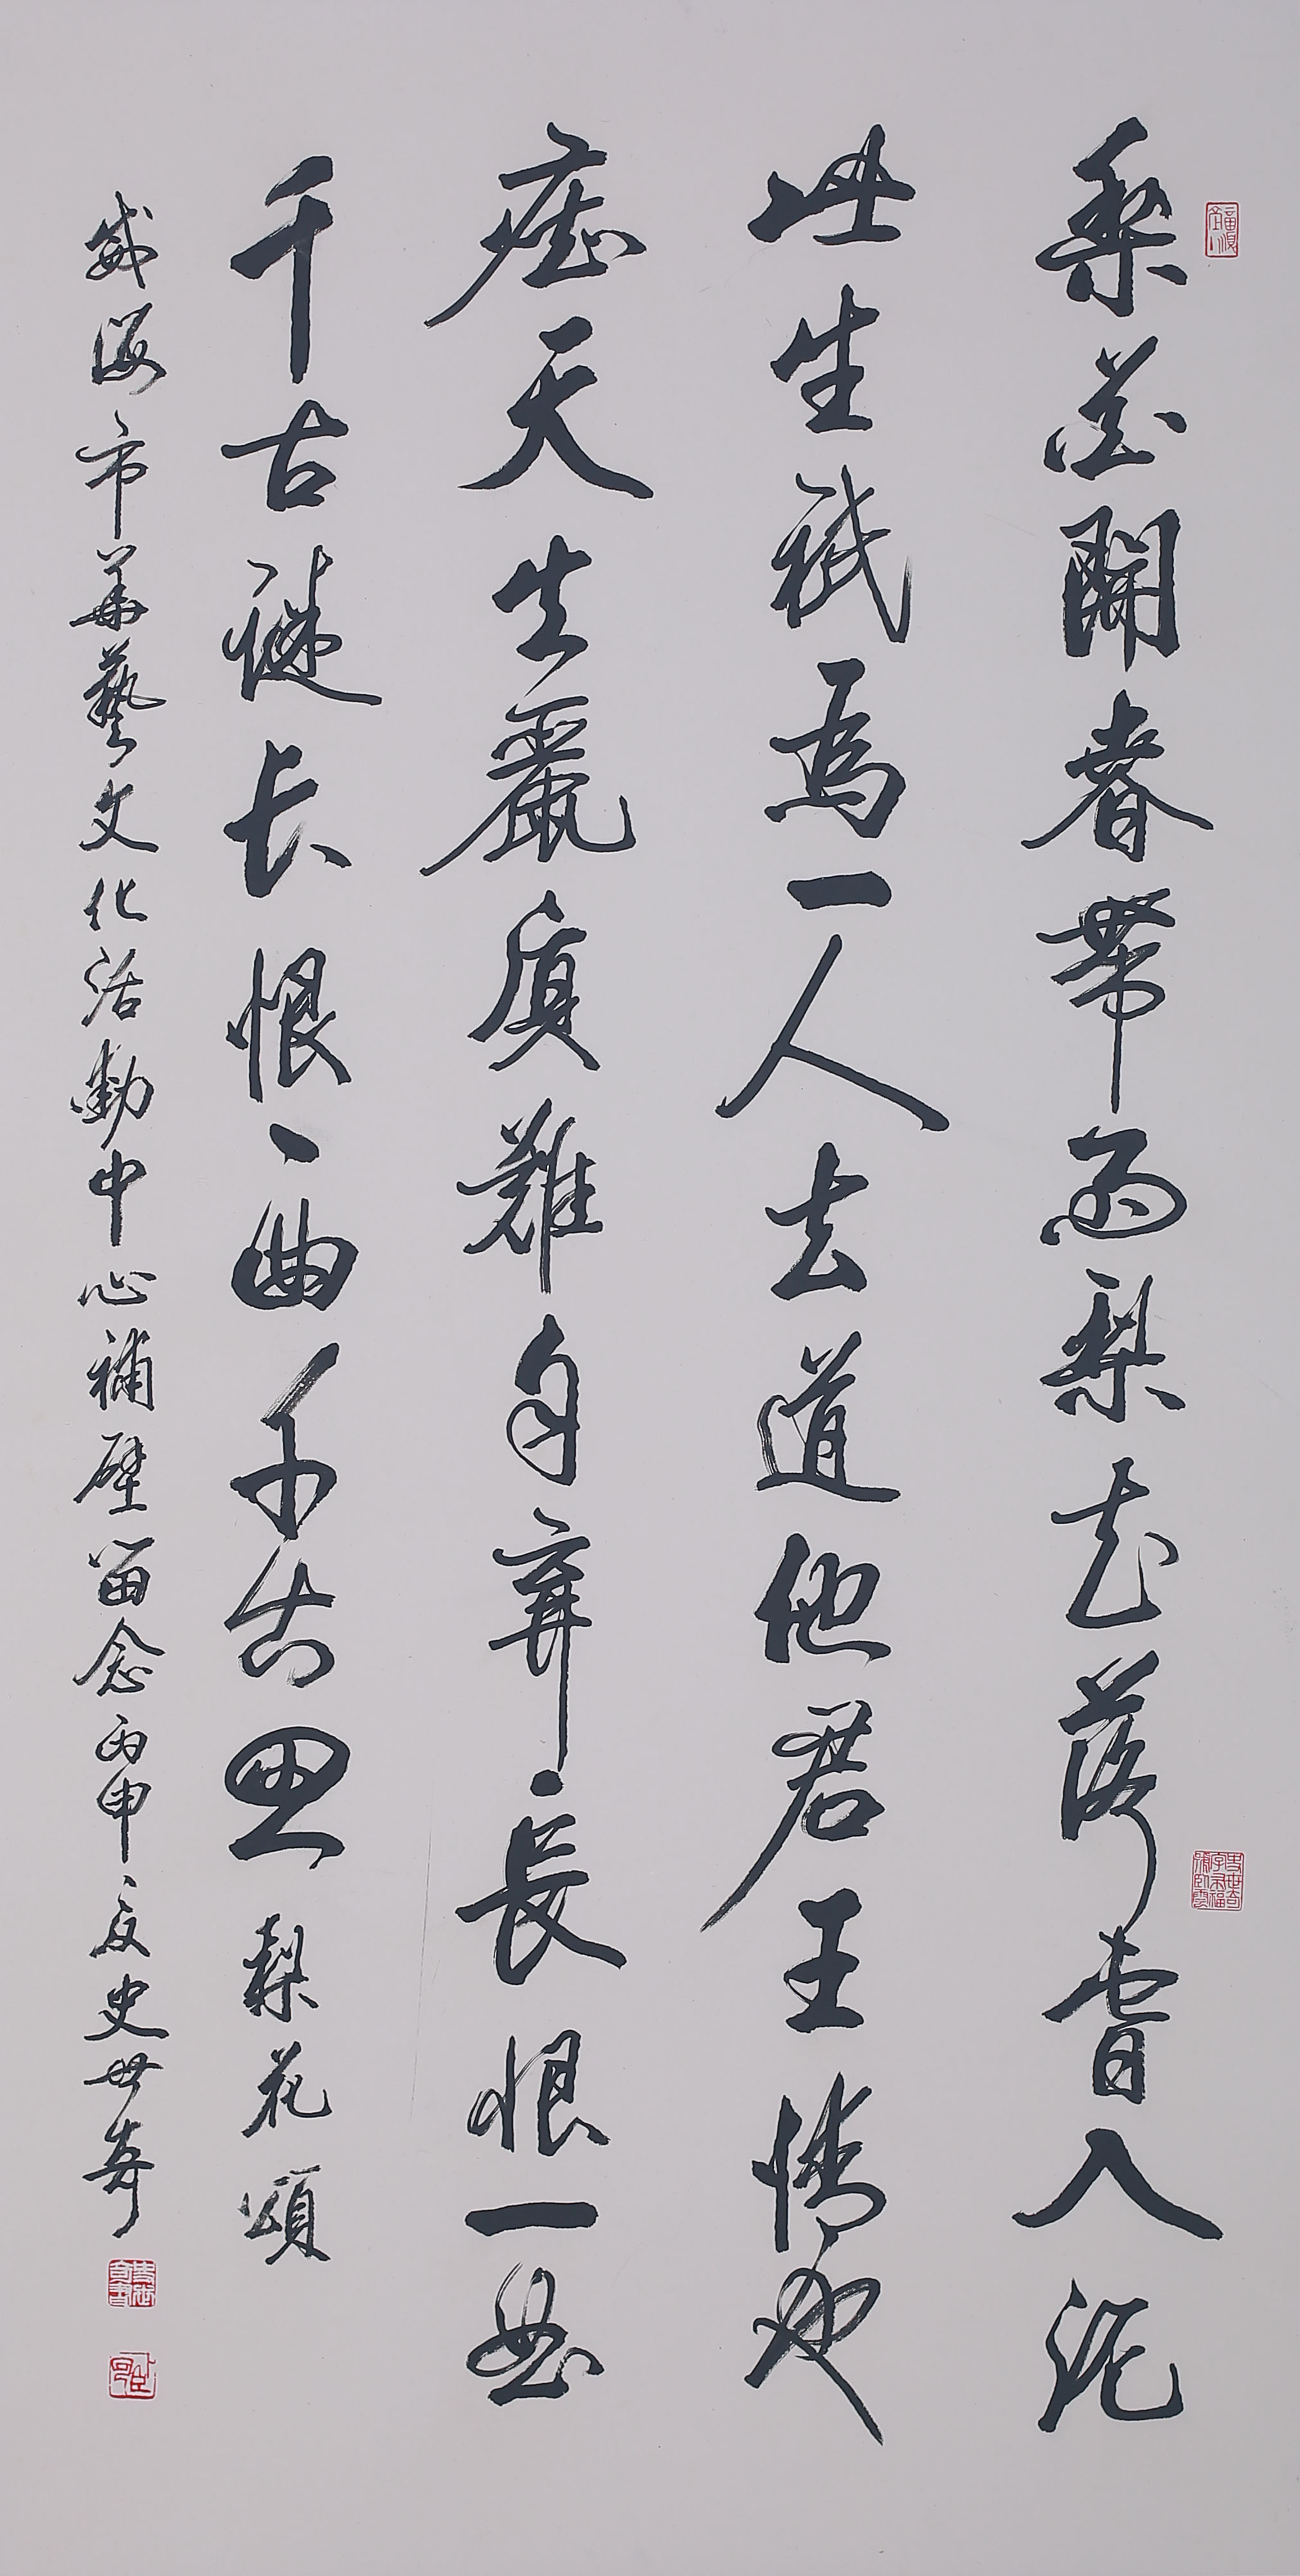 梨花開春帶雨梨花落春入泥
此生祇為一人去道他君王情也
癡天生麗質難自棄長恨一曲
千古謎长恨一曲千古思 梨花頌
威海市華藝文化活動中心補壁留念丙申夏史世奇